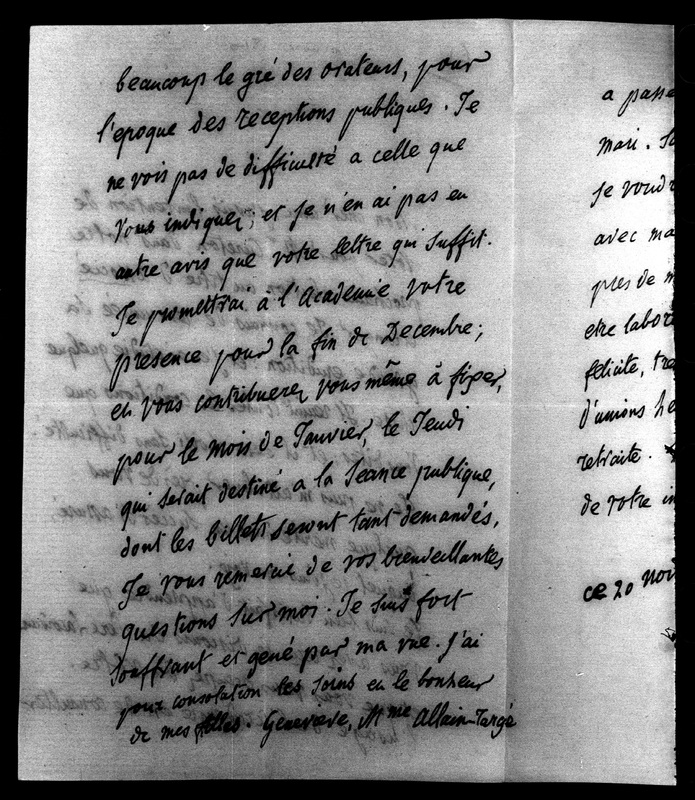 beaucoup le gré des orateurs, pour
l'epoque des receptions publiques. Je
ne vois pas de difficulté a celle que
vous indiquez; et je n'en ai pas eu
autre avis que votre lettre qui suffit.
Je promettrai à l'Academie votre
presence pour la fin de Decembre;
et vous contribuerez vous même à fixer,
pour le mois de Janvier, le Jeudi
qui serait destiné a la Seance publique,
dont les billets seront tant demandés.
Je vous remercie de vos bienveillantes
questions sur moi. Je suis fort
souffrant et gené par ma vue. J'ai
pour consolation les soins et le bonheur
de mes filles. Genevieve, Mme Allain-Targé
a passé
mari. So
je voud
avec ma
pres de m
etre labor
félicite, tre
d'unions he
retraite.
de votre in
ce 20 nov